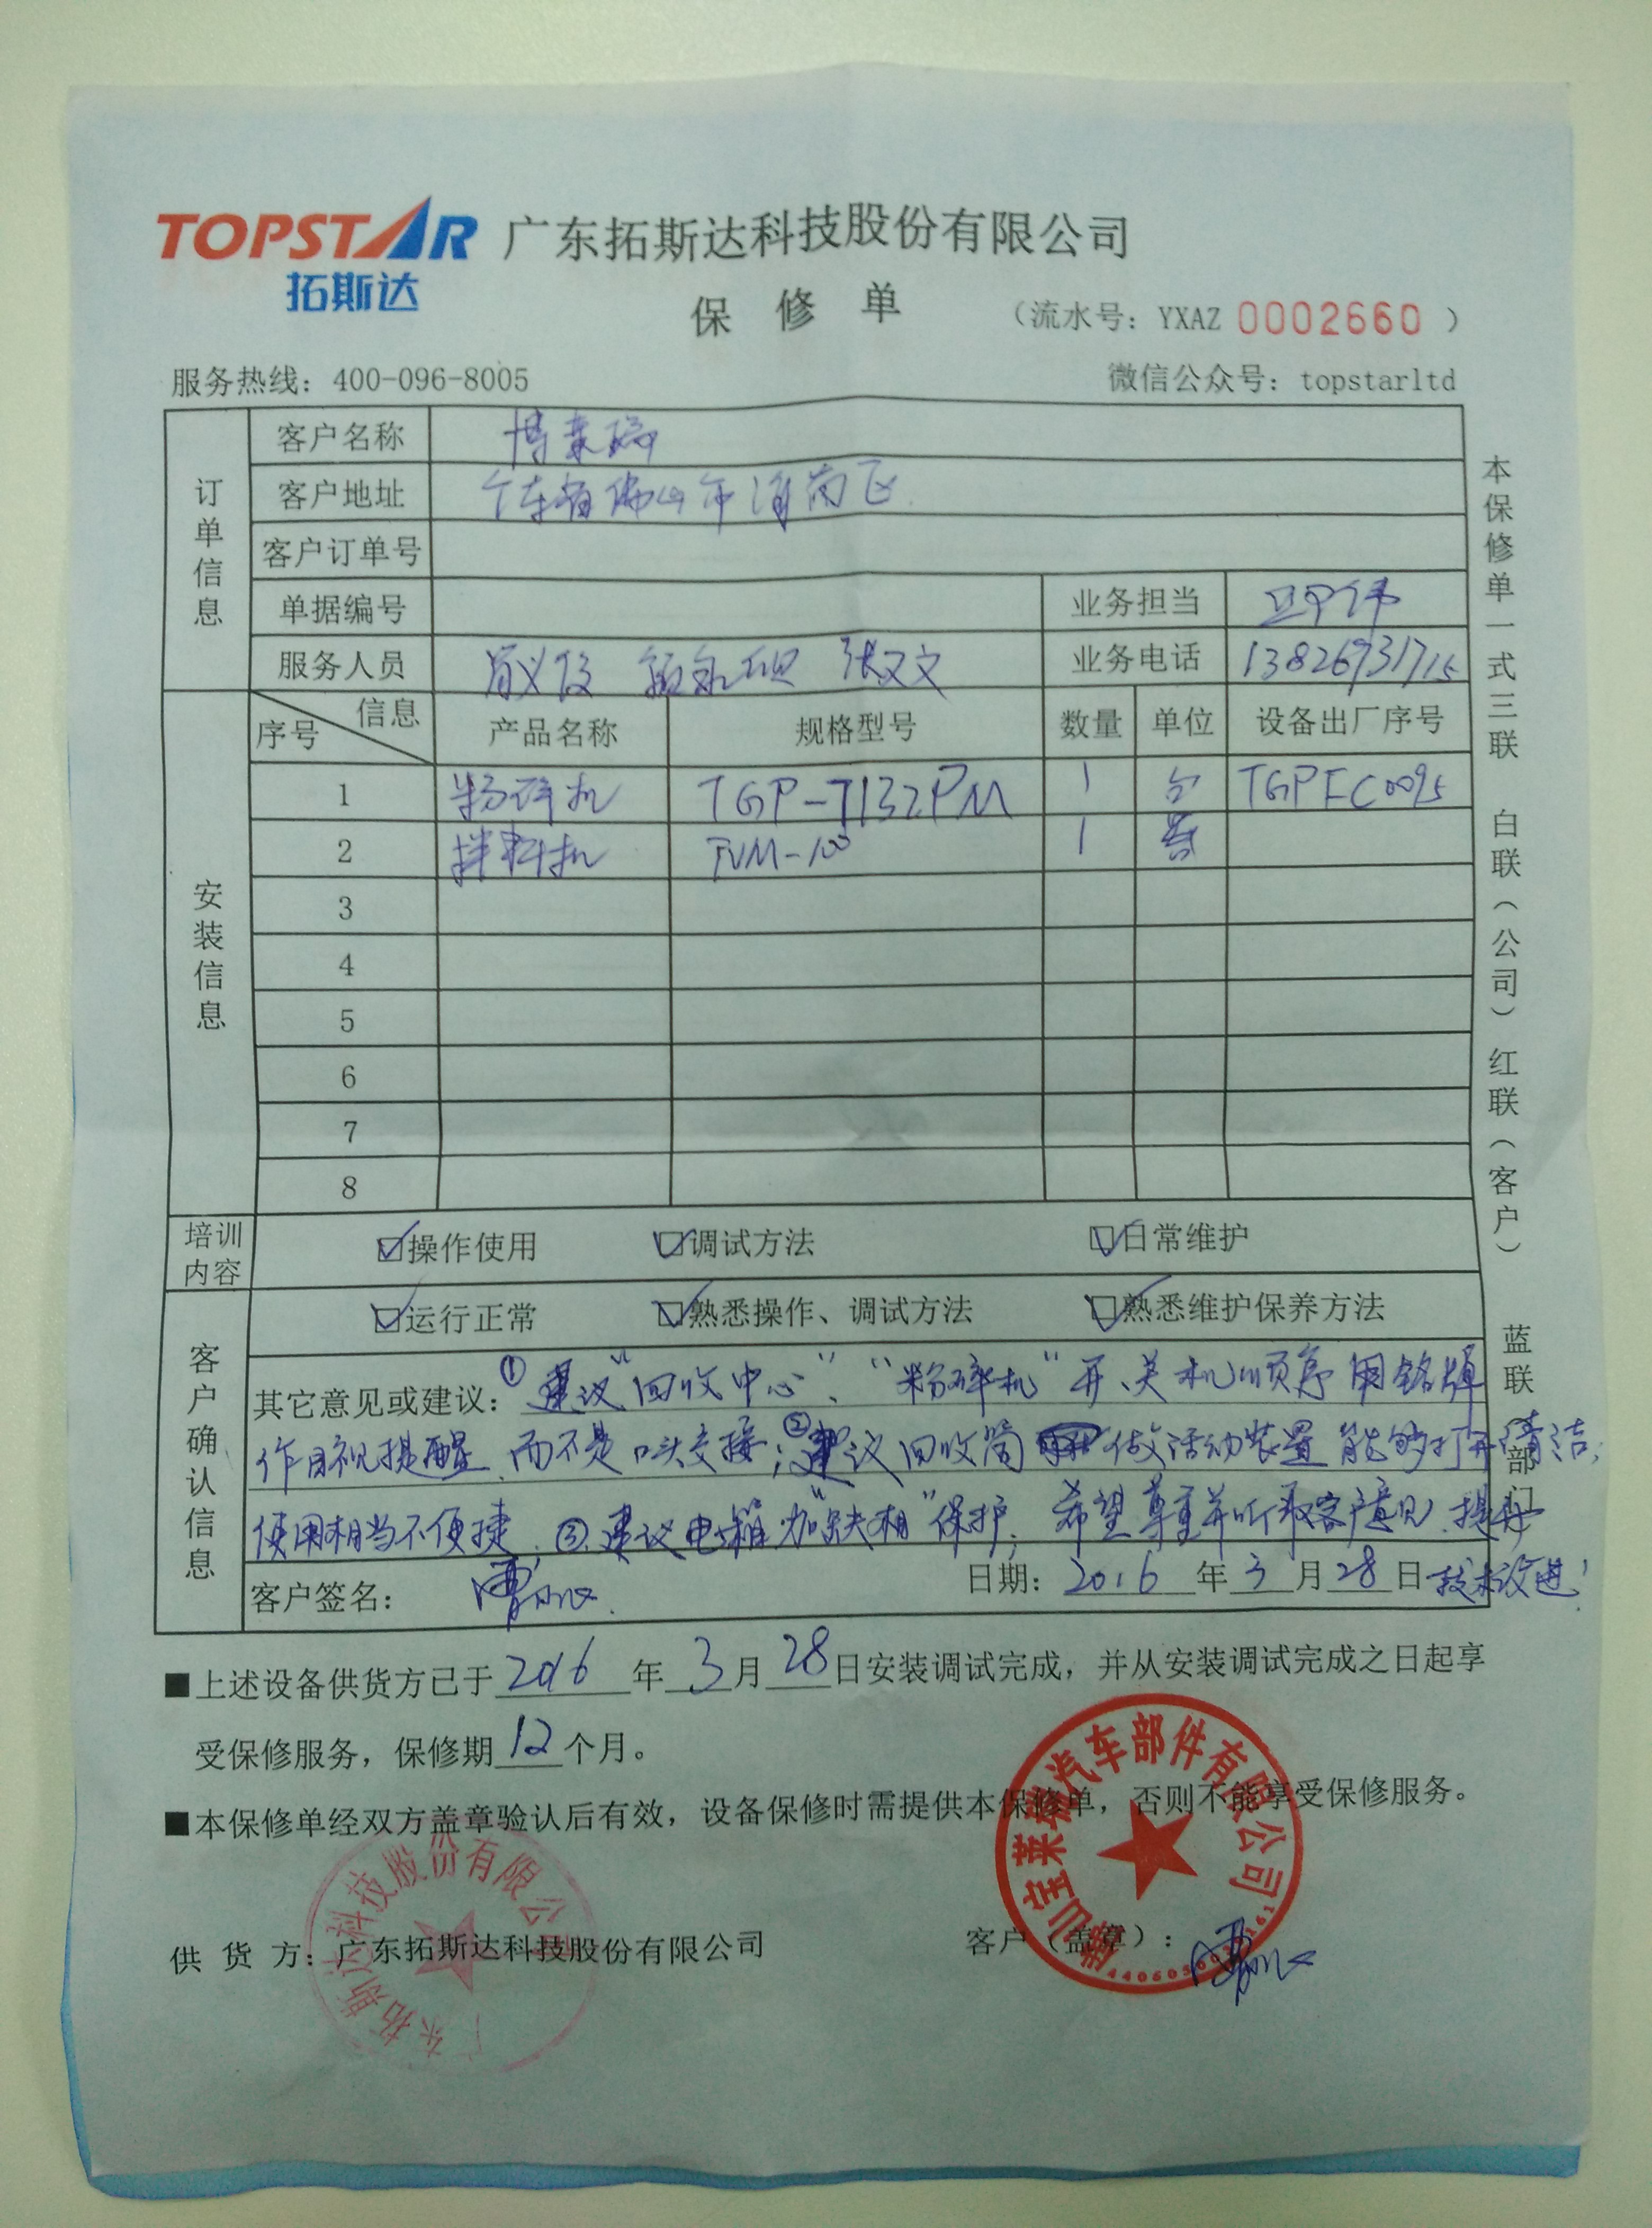 TOPSTAR 广东拓斯达科技股份有限公司
拓斯达
保修单 (流水号: YXAZ 0002660)
服务热线: 400-096-8005 微信公众号: topstarltd
订单信息
客户名称 博莱瑞
客户地址 广东省佛山市
客户订单号
单据编号 业务担当
服务人员 业务电话 13826931715
安装信息
序号 信息 产品名称 规格型号 数量 单位 设备出厂序号
1 粉碎机 TGP-7132PM 1 台
2 拌料机 TVM-100 1
3
4
5
6
7
8
培训内容 ☑操作使用 ☑调试方法 ☑日常维护
客户确认信息
☑运行正常 ☑熟悉操作、调试方法 ☑熟悉维护保养方法
其它意见或建议: ①建议"回收中心"、"粉碎机"开、关机顺序用铭牌
作目视提醒,而不是口头交接;②建议回收筒做活动装置能够打开清洁;
使用相当不便捷.③建议电箱加"缺相"保护;希望尊重并听取客户意见,提升
技术改进!
客户签名: 日期: 2016年3月28日
■上述设备供货方已于2016年3月28日安装调试完成，并从安装调试完成之日起享
受保修服务，保修期12个月。
■本保修单经双方盖章验认后有效，设备保修时需提供本保修单，否则不能享受保修服务。
供货方: 广东拓斯达科技股份有限公司 客户(盖章):
广东拓斯达科技股份有限公司
汽车部件有限公司
本保修单一式三联 白联(公司) 红联(客户) 蓝联(部门)